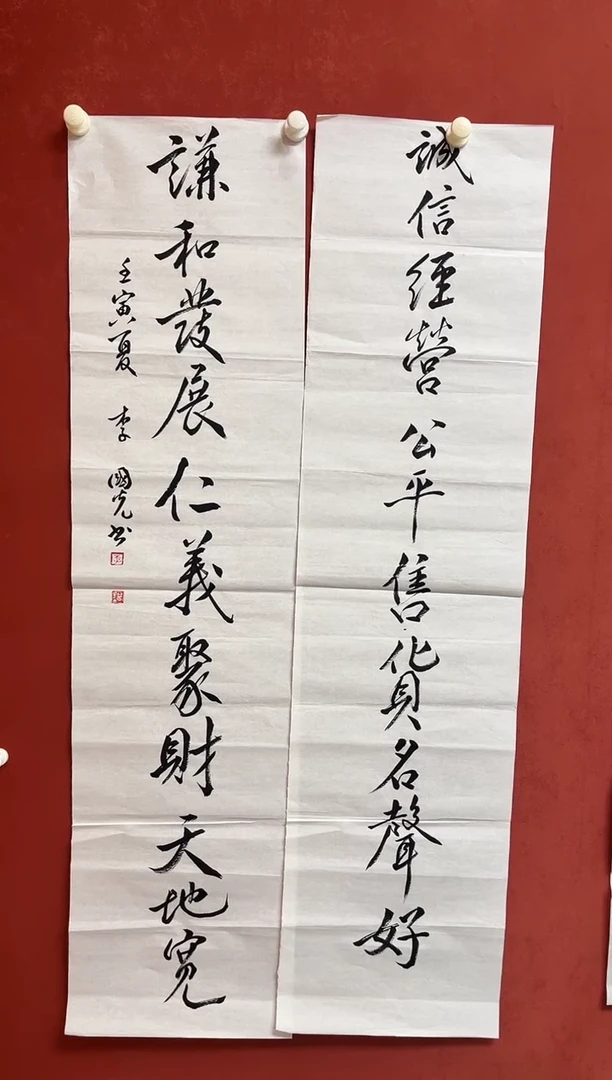 誠信經營公平售貨名聲好
謙和發展仁義聚財天地寬
壬寅夏 李國光书